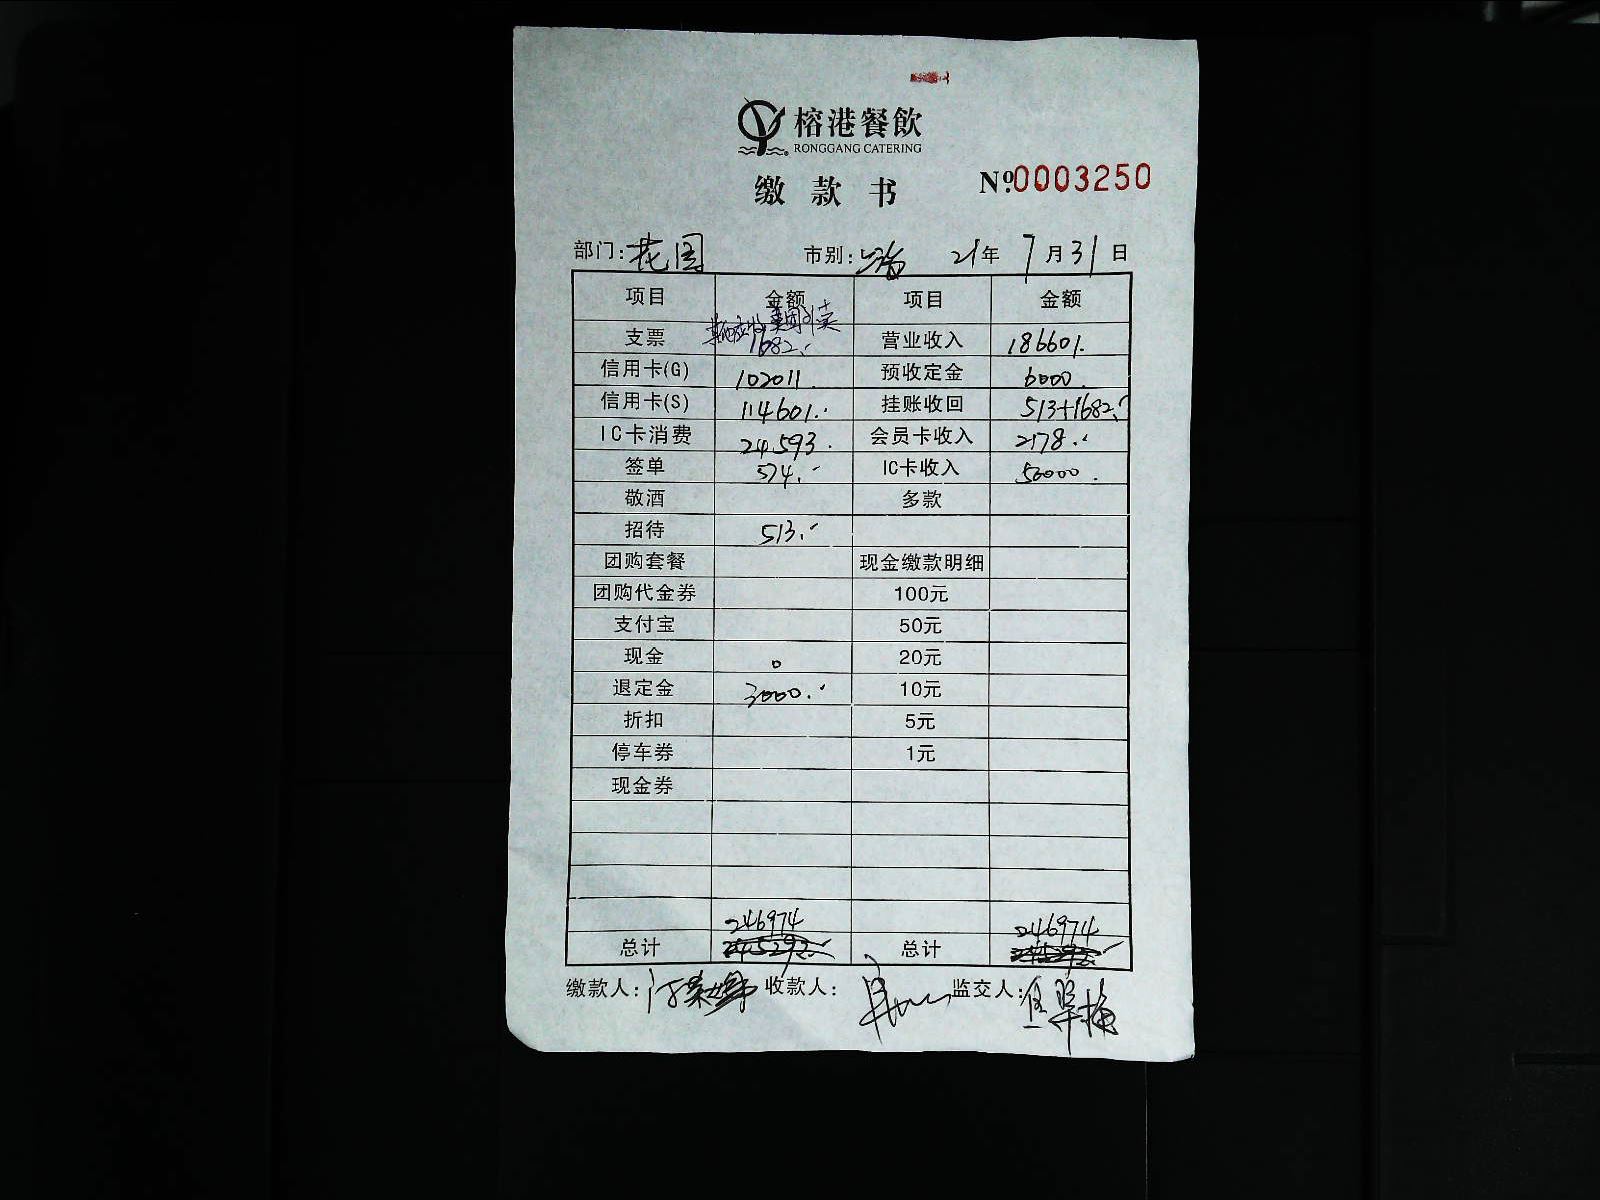 榕港餐飲
RONGGANG CATERING
缴款书 №0003250
部门:花园 市别: 21年7月31日
项目 金额 项目 金额
美团外卖
支票 1682. 营业收入 186601.
信用卡(G) 102011. 预收定金 6000.
信用卡(S) 114601. 挂账收回 513+1682.
IC卡消费 24593. 会员卡收入 2178.
签单 574. IC卡收入 50000.
敬酒 多款
招待 513.
团购套餐 现金缴款明细
团购代金券 100元
支付宝 50元
现金 0 20元
退定金 3000. 10元
折扣 5元
停车券 1元
现金券
246974 246974
总计 总计
缴款人: 收款人: 监交人: